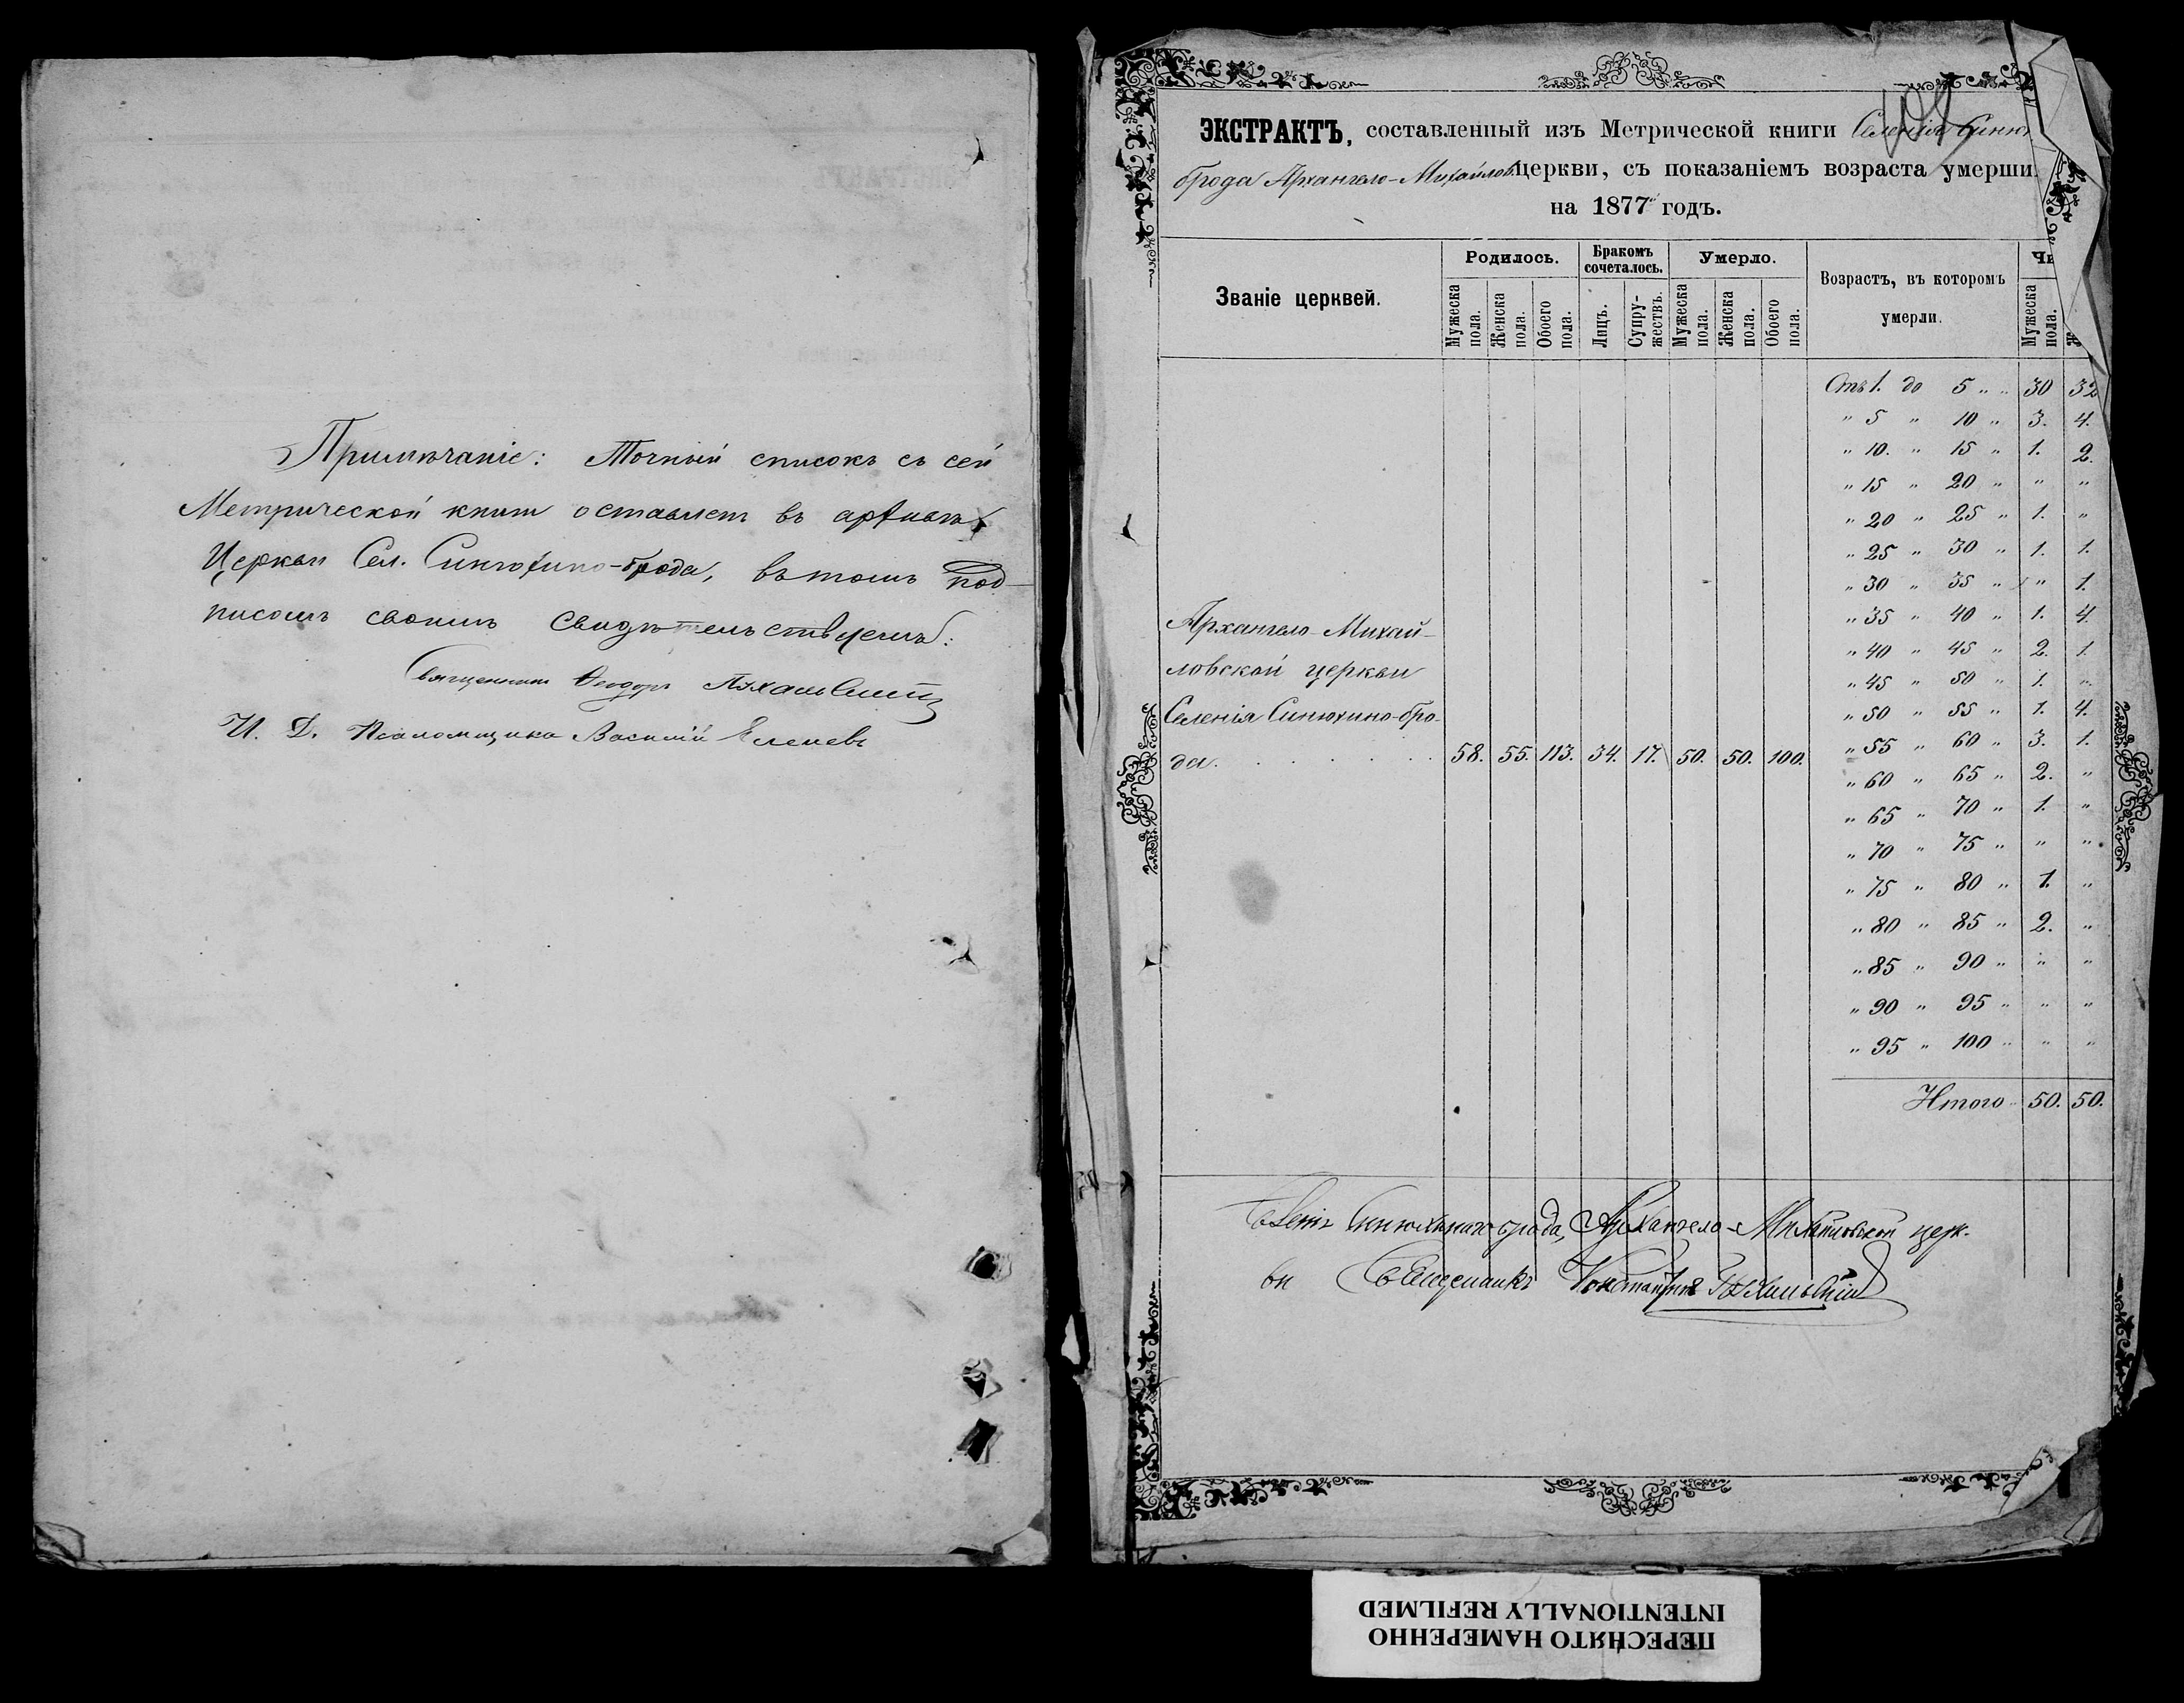 Примѣчаніе: Точный списокъ съ сей
Метрической книги оставленъ въ архивѣ
Церкви Сел. Синюхино-брода, въ томъ под-
писомъ своимъ свидѣтельствуемъ:
Священникъ Ѳеодоръ
И. Д. Псаломщика Василій Еленевъ
ЭКСТРАКТЪ, составленный изъ Метрической книги Селенія Синю
брода Архангело-Михайлов. церкви, съ показаніемъ возраста умерши
на 1877 годъ.
Званіе церквей. Родилось. Бракомъ сочеталось. Умерло. Возрастъ, въ которомъ умерли. Чи
Мужеска пола. Женска пола. Обоего пола. Лицъ. Супру-жествъ. Мужеска пола. Женска пола. Обоего пола. Мужеска пола. Ж
Отъ 1. до 5 " " 30 32
" 5 " 10 " 3. 4.
" 10. " 15 " 1. 2.
" 15 " 20 " " "
" 20 " 25 " 1. "
" 25 " 30 " 1. 1.
" 30 " 35 " " 1.
" 35 " 40 " 1. 4.
" 40 " 45 " 2. 1.
" 45 " 50 " 1. "
" 50 " 55 " 1. 4.
" 55 " 60 " 3. 1.
" 60 " 65 " 2. "
" 65 " 70 " 1. "
" 70 " 75 " " "
" 75 " 80 " 1. "
" 80 " 85 " 2. "
" 85 " 90 " " "
" 90 " 95 " " "
" 95 " 100 " " "
Итого 50. 50.
Архангело-Михай-
ловской церкви
Селенія Синюхино-бро-
да. . . . . . . 58. 55. 113. 34. 17. 50. 50. 100.
Селенія Синюхинаго брода, Архангело-Михайловской церк-
ви Священникъ Константинъ
ПЕРЕСНЯТО НАМЕРЕННО
INTENTIONALLY REFILMED